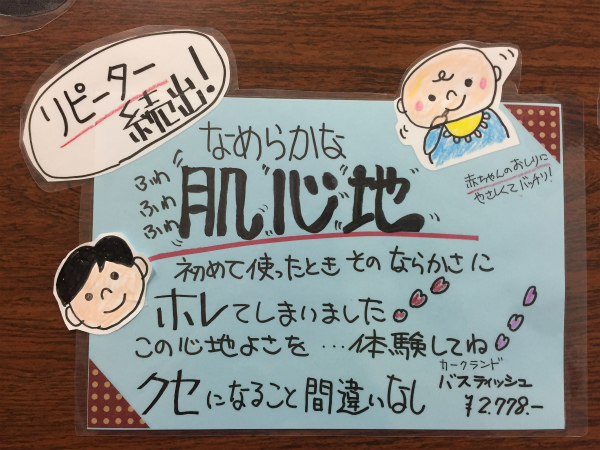 リピーター
続出!
なめらかな
ふわ
ふわ
ふわ
肌心地
赤ちゃんのおしりに
やさしくてバッチリ!
初めて使ったときそのならかさに
ホレてしまいました
この心地よさを…体験してね
クセになること間違いなし
カークランド
バスティッシュ
¥2,778.-